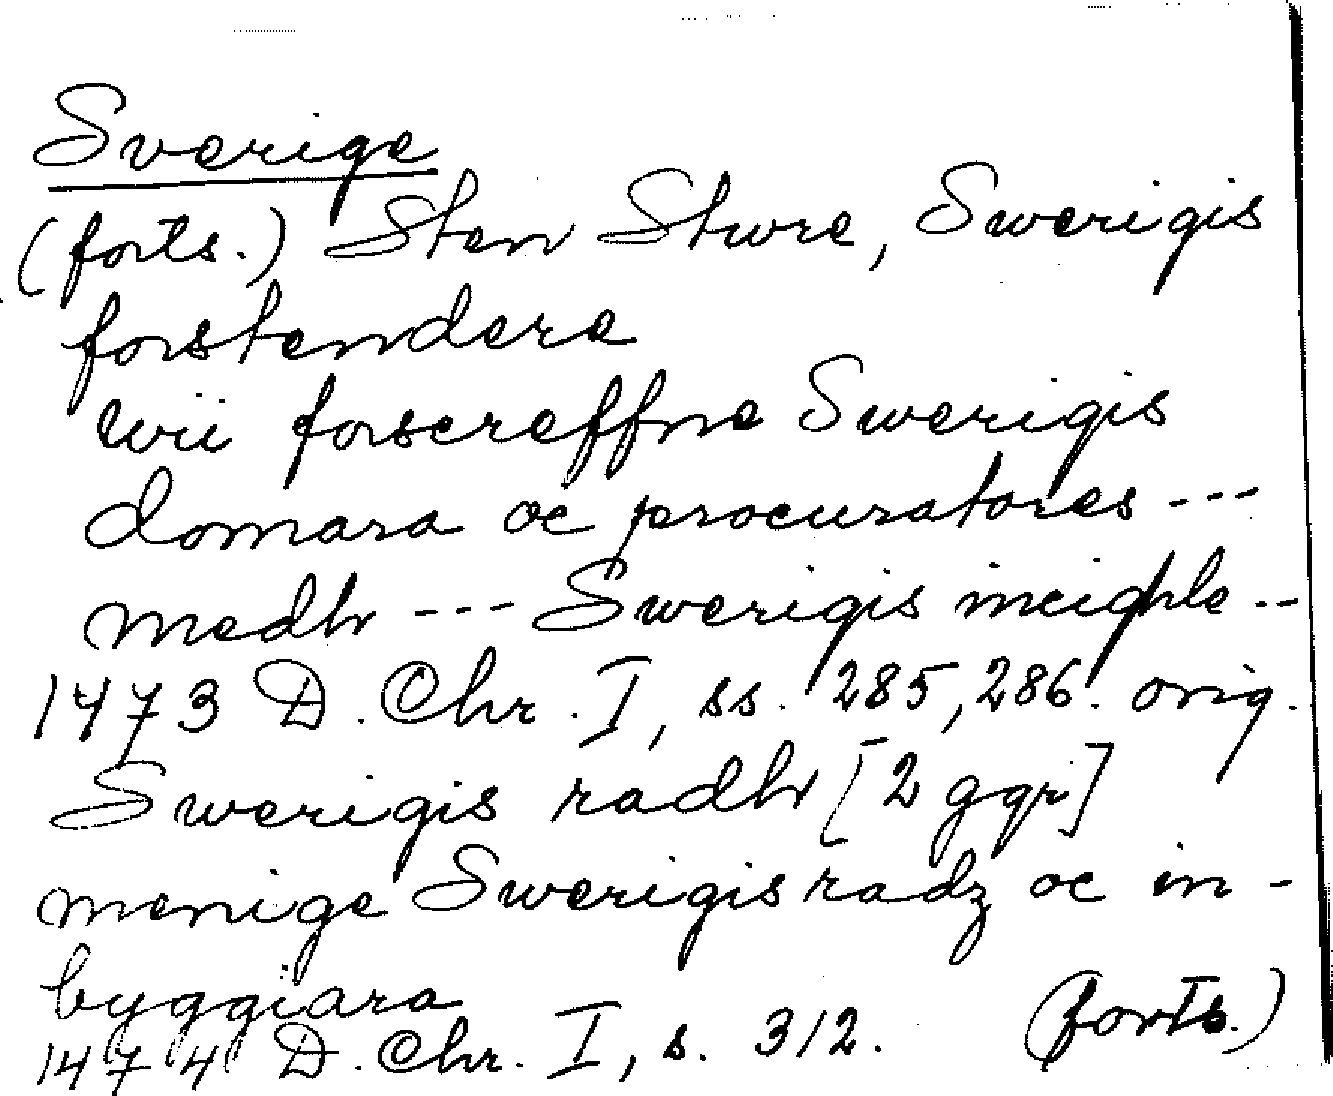 Sverige
(forts.) Sten Sture, Swerigis
forstendere
wii forscreffne Swerigis
domara oc procuratores ---
medh --- Swerigis meighle --
1473 D. Chr. I, ss. 285, 286. orig.
Swerigis radh [2 ggr]
menige Swerigis radz oc in-
byggiara
1474 D. Chr. I, s. 312. (forts.)